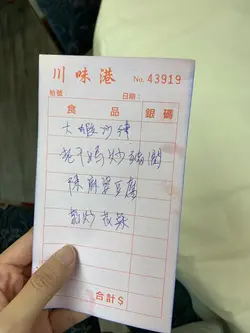 川味港 No. 43919
枱號: 日期:
食品 銀碼
大蝦沙律
老干媽炒豬
陳麻婆豆腐
炒花菜
合計$